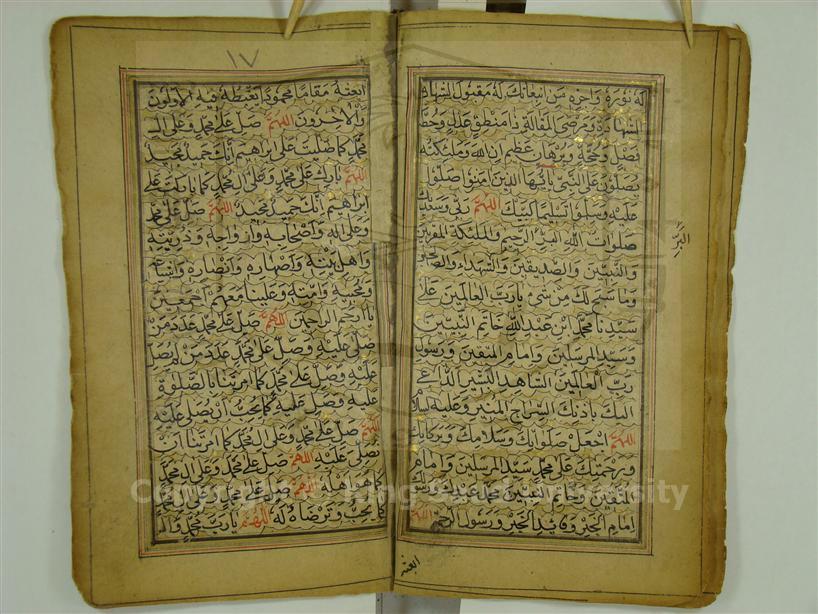 له نوره واجزه من ابتعاثك له مقبول الشهادة
الشهادة ومرضى المقالة ذا منطق عدل وخطة
فصل وحجة وبرهان عظيم ان الله وملئكته
يصلون على النبى يايها الذين امنوا صلوا
عليه وسلموا تسليما لبيك اللهم ربى وسعديك
صلوات الله البر الرحيم والملئكة المقربين
والنبيين والصديقين والشهداء والصالحين
وما سبح لك من شئ يارب العالمين على
سيدنا محمد ابن عبد الله خاتم النبيين
وسيد المرسلين وامام المتقين ورسول
رب العالمين الشاهد البشير الداعى
اليك باذنك السراج المنير وعليه السلام
اللهم اجعل صلواتك وسلامك وبركاتك
ورحمتك على محمد سيد المرسلين وامام المتقين
وخاتم النبيين محمد عبدك ورسولك
امام الخير وقائد الخير ورسول الرحمة اللهم
البر
ابعثه
١٧
ابعثه مقاما محمودا يغبطه فيه الاولون
والاخرون اللهم صل على محمد وعلى ال
محمد كما صليت على ابراهيم انك حميد مجيد
اللهم بارك على محمد وعلى ال محمد كما باركت على
ابراهيم انك حميد مجيد اللهم صل على محمد
وعلى اله واصحابه وازواجه وذريته
واهل بيته واصهاره وانصاره واشياعه
ومحبيه وامته وعلينا معهم اجمعين
ياارحم الراحمين اللهم صل على محمد عدد من
صلى عليه وصل على محمد عدد من لم يصل
عليه وصل على محمد كما امرتنا بالصلوة
عليه وصل عليه كما يحب ان يصلى عليه
اللهم صل على محمد وعلى ال محمد كما امرتنا ان
نصلى عليه اللهم صل على محمد وعلى ال محمد
كما هو اهله اللهم صل على محمد وعلى ال محمد
كما تحب وترضاه له اللهم يارب محمد وال
Copyright © King Saud University